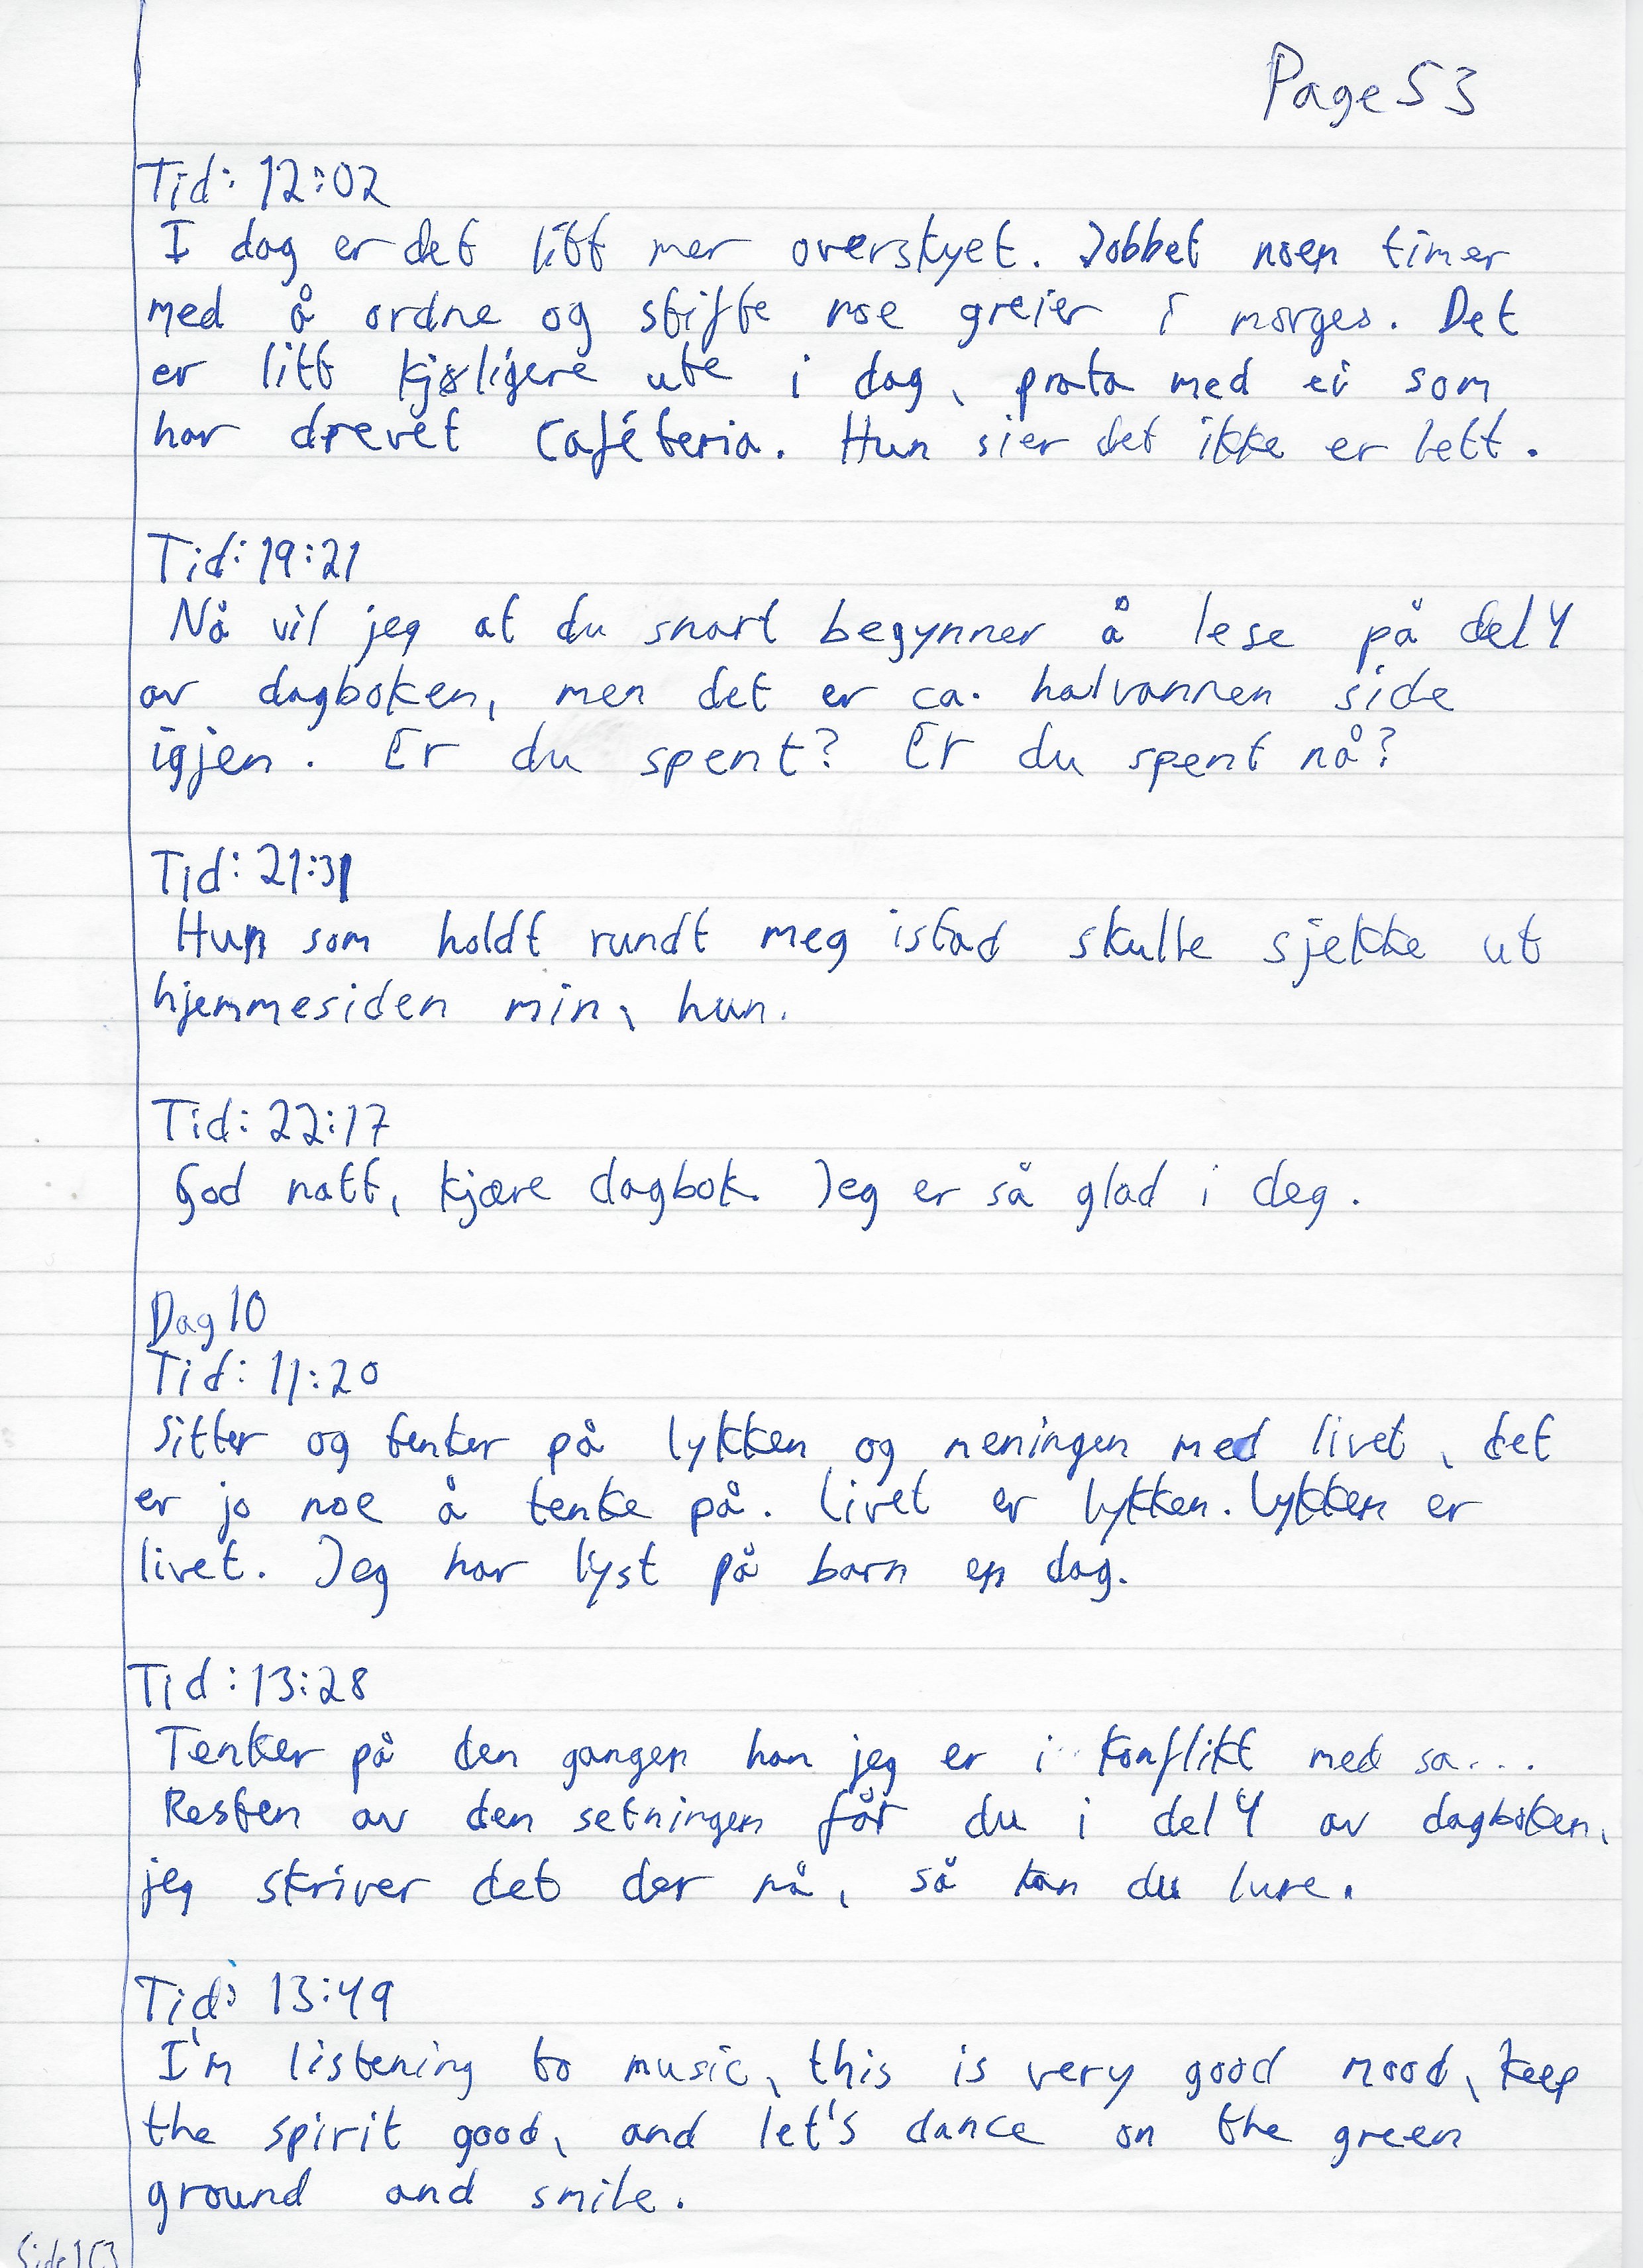 Page 53
Tid: 12:02
I dag er det litt mer overskyet. Jobbet noen timer
med å ordne og stifte noe greier i morges. Det
er litt kjøligere ute i dag, prata med ei som
har drevet Caféteria. Hun sier det ikke er lett.
Tid: 19:21
Nå vil jeg at du snart begynner å lese på del 4
av dagboken, men det er ca. halvannen side
igjen. Er du spent? Er du spent nå?
Tid: 21:31
Hun som holdt rundt meg istad skulle sjekke ut
hjemmesiden min, hun.
Tid: 22:17
God natt, kjære dagbok. Jeg er så glad i deg.
Dag 10
Tid: 11:20
Sitter og tenker på lykken og meningen med livet, det
er jo noe å tenke på. Livet er lykken. Lykken er
livet. Jeg har lyst på barn en dag.
Tid: 13:28
Tenker på den gangen han jeg er i konflikt med sa...
Resten av den setningen får du i del 4 av dagboken,
jeg skriver det der nå, så kan du lure.
Tid: 13:49
I'm listening to music, this is very good mood, keep
the spirit good, and let's dance on the green
ground and smile.